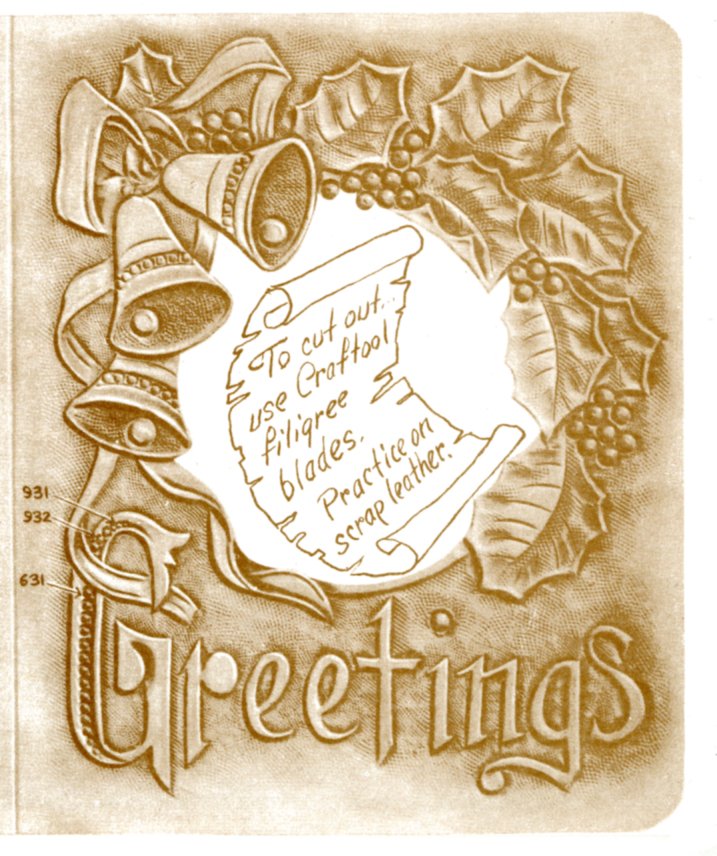 To cut out...
use Craftool
filigree
blades.
Practice on
scrap leather.
931
932
631
Greetings